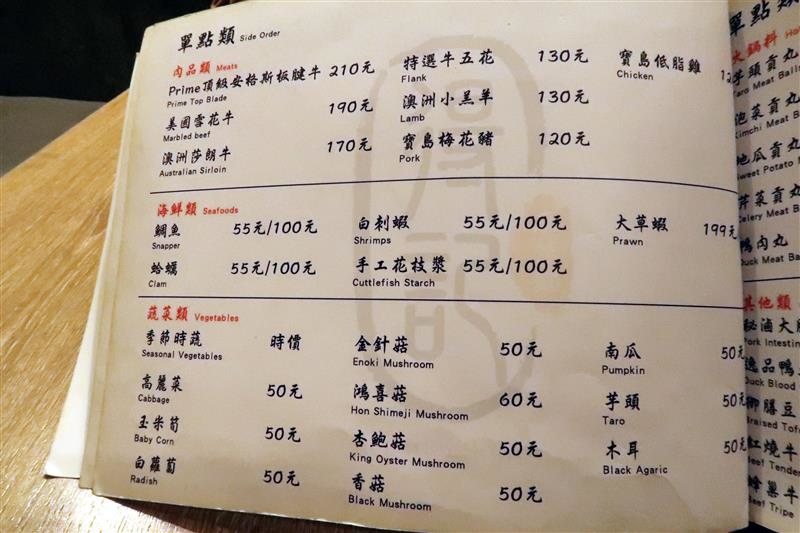 單點類 Side Order
肉品類 Meats
Prime頂級安格斯板腱牛 210元
Prime Top Blade
特選牛五花 130元
Flank
寶島低脂雞
Chicken
美國雪花牛 190元
Marbled beef
澳洲小羔羊 130元
Lamb
澳洲莎朗牛 170元
Australian Sirloin
寶島梅花豬 120元
Pork
海鮮類 Seafoods
鯛魚 55元/100元
Snapper
白刺蝦 55元/100元
Shrimps
大草蝦 199元
Prawn
蛤蠣 55元/100元
Clam
手工花枝漿 55元/100元
Cuttlefish Starch
蔬菜類 Vegetables
季節時蔬 時價
Seasonal Vegetables
金針菇 50元
Enoki Mushroom
南瓜 50元
Pumpkin
高麗菜 50元
Cabbage
鴻喜菇 60元
Hon Shimeji Mushroom
芋頭 50元
Taro
玉米筍 50元
Baby Corn
杏鮑菇 50元
King Oyster Mushroom
木耳 50元
Black Agaric
白蘿蔔 50元
Radish
香菇 50元
Black Mushroom
單點
火鍋料
芋頭貢丸
Taro Meat Balls
泡菜貢丸
Kimchi Meat
地瓜貢丸
Sweet Potato
芹菜貢丸
Celery Meat
鴨肉丸
Duck Meat
其他類
秘滷大腸
Pork Intestin
逸品鴨
Duck Blood
御膳豆
Braised Tofu
紅燒牛
Beef Tende
蜂巢牛
Beef Tripe